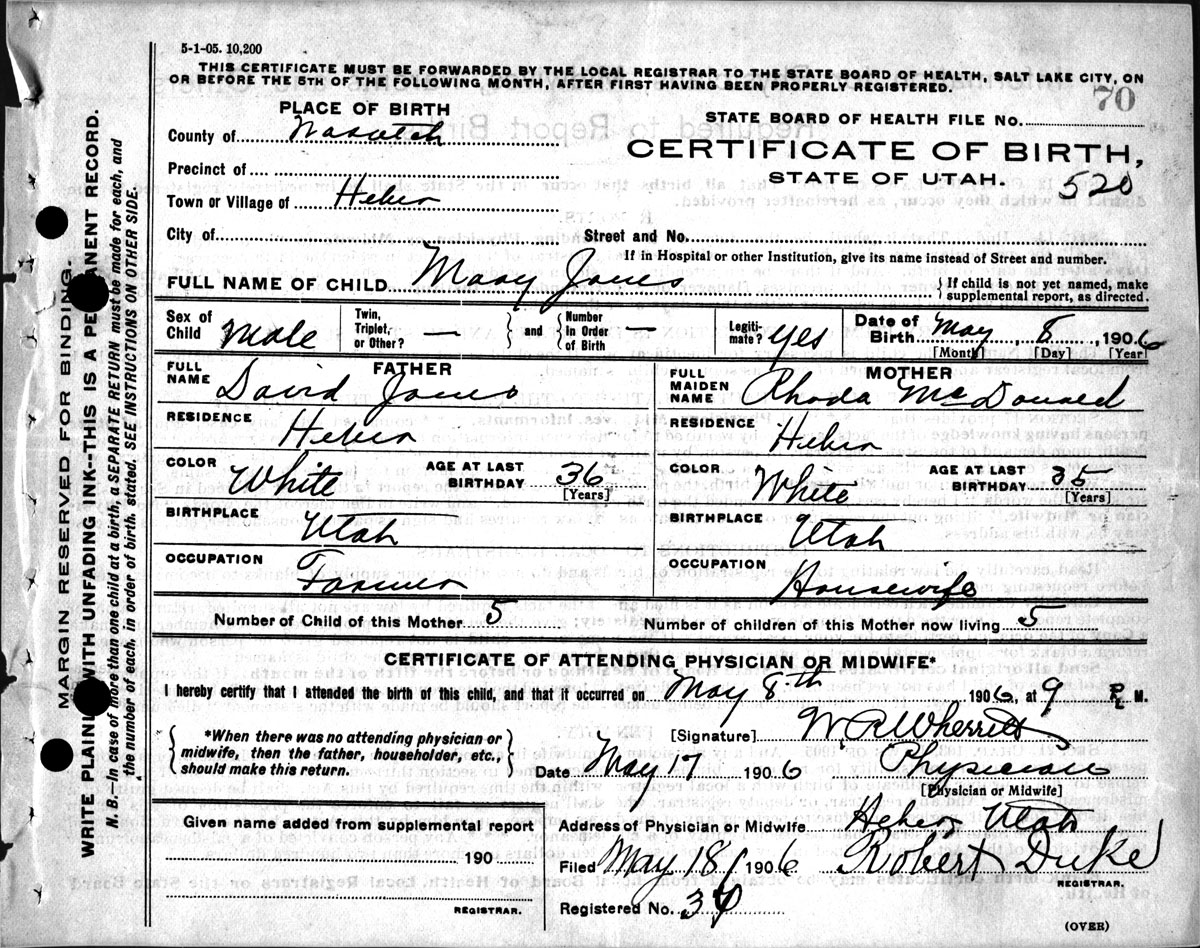 5-1-05. 10,200
THIS CERTIFICATE MUST BE FORWARDED BY THE LOCAL REGISTRAR TO THE STATE BOARD OF HEALTH, SALT LAKE CITY, ON
OR BEFORE THE 5TH OF THE FOLLOWING MONTH, AFTER FIRST HAVING BEEN PROPERLY REGISTERED.
70
PLACE OF BIRTH
STATE BOARD OF HEALTH FILE NO.
County of Wasatch
CERTIFICATE OF BIRTH,
Precinct of
STATE OF UTAH. 520
Town or Village of Heber
City of Street and No.
If in Hospital or other Institution, give its name instead of Street and number.
FULL NAME OF CHILD Mary Jones { If child is not yet named, make
supplemental report, as directed.
Sex of Child Male Twin, Triplet, or Other? — } and { Number In Order of Birth — Legiti-mate? yes Date of Birth May, 8, 1906
[Month] [Day] [Year]
FATHER MOTHER
FULL NAME David Jones FULL MAIDEN NAME Rhoda McDonald
RESIDENCE Heber RESIDENCE Heber
COLOR White AGE AT LAST BIRTHDAY 36 [Years] COLOR White AGE AT LAST BIRTHDAY 35 [Years]
BIRTHPLACE Utah BIRTHPLACE Utah
OCCUPATION Farmer OCCUPATION Housewife
Number of Child of this Mother 5 Number of children of this Mother now living 5
CERTIFICATE OF ATTENDING PHYSICIAN OR MIDWIFE*
I hereby certify that I attended the birth of this child, and that it occurred on May 8th 1906, at 9 P. M.
*When there was no attending physician or
midwife, then the father, householder, etc.,
should make this return.
[Signature] W R Wherritt
Date May 17 1906 Physician
[Physician or Midwife]
Given name added from supplemental report
190
REGISTRAR.
Address of Physician or Midwife Heber Utah
Filed May 18 1906 Robert Duke
REGISTRAR.
Registered No. 
(OVER)
MARGIN RESERVED FOR BINDING.
WRITE PLAINLY WITH UNFADING INK--THIS IS A PERMANENT RECORD.
N. B.—In case of more than one child at a birth, a SEPARATE RETURN must be made for each, and
the number of each, in order of birth, stated. SEE INSTRUCTIONS ON OTHER SIDE.